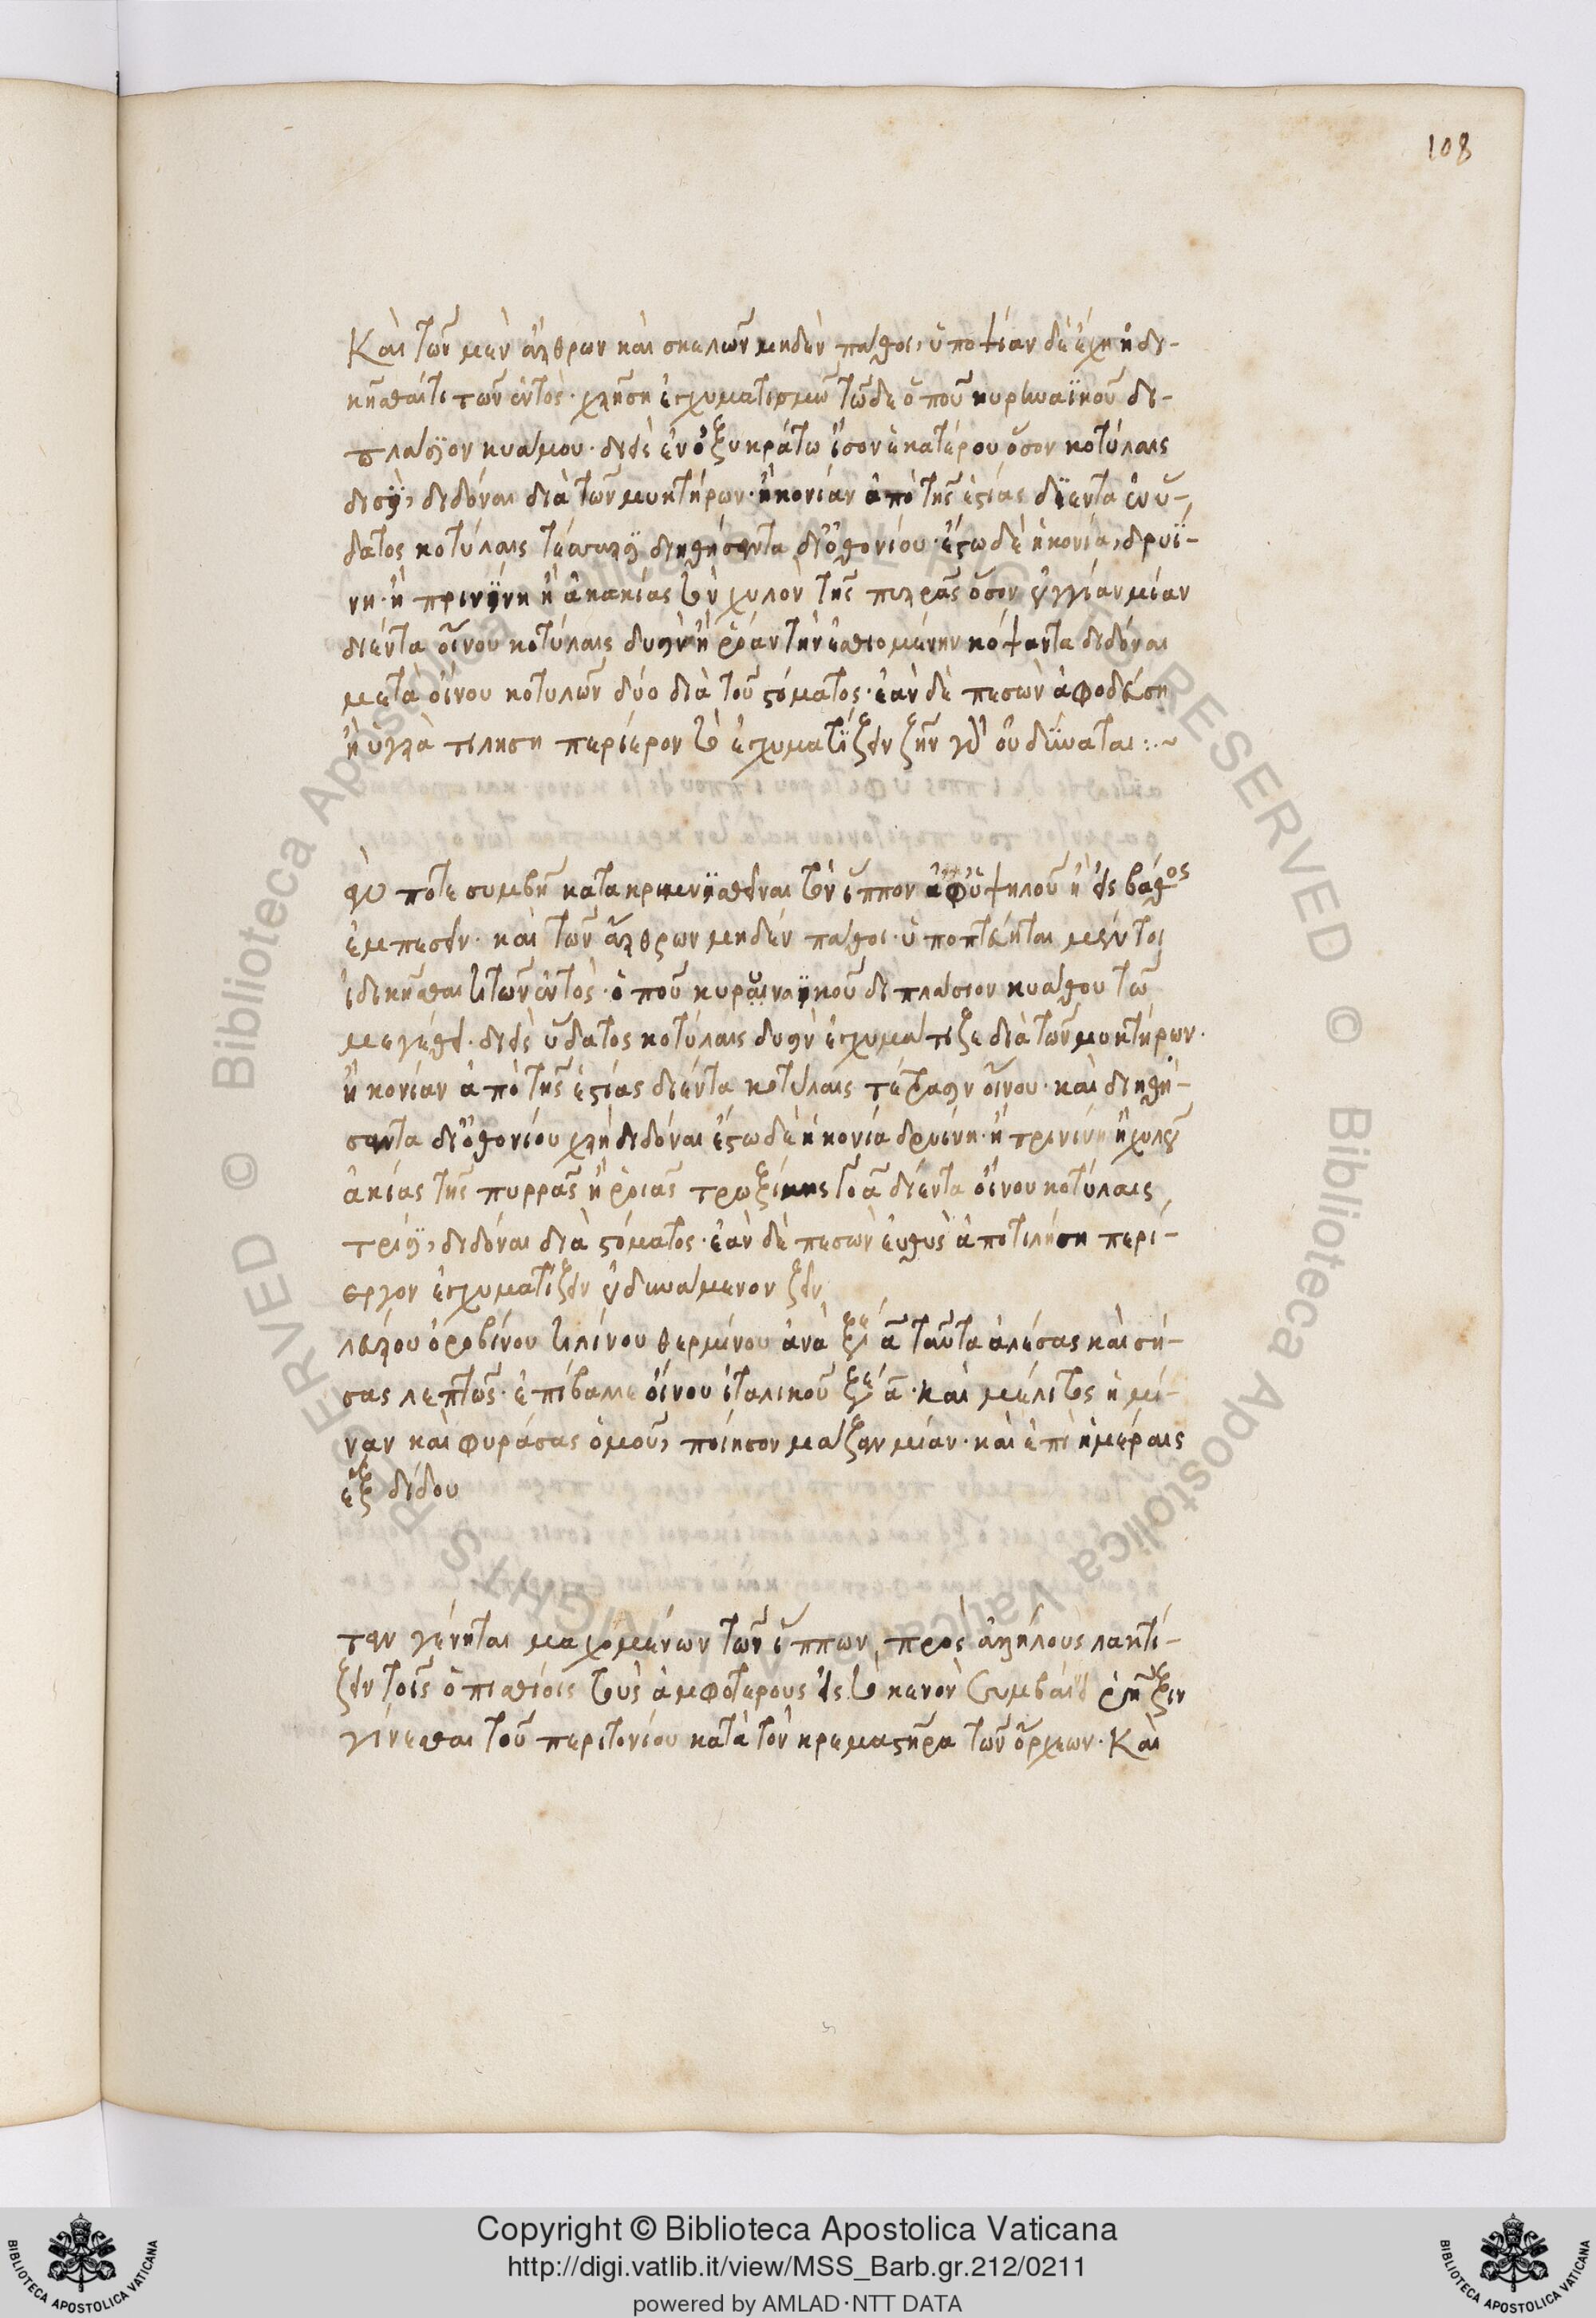 108
Καὶ τῶν μὲν ἄρθρων καὶ σκελῶν μηδὲν πάθοι, ὑποψίαν δὲ ἔχῃ ἠδι-
κῆσθαί τι τῶν ἐντὸς· χρήση ἐγχυματισμῶ τῶδε ὀποῦ κυρηναϊκοῦ δι-
πλάσϊον κυάμου· διεὶς ἐν ὀξυκράτω ἴσον ἑκατέρου ὅσον κοτύλαις
δισὶ, διδόναι διὰ τῶν μυκτήρων· ἢ κονίαν ἀπὸ τῆς ἑστίας διέντα ἐν ὕ-
δατος κοτύλαις διηθήσαντα δι' ὀθονίου· ἔστω δὲ ἡ κονία, δρυϊ-
νη· ἢ πρινΐνη ἢ ἀκακίας τὸν χυλὸν τῆς πυρρᾶς ὅσον οὐγγίαν μίαν
διέντα οἴνου κοτύλαις δυσὶν ἢ ῥόαν τὴν ἐσθιομένην κόψαντα διδόναι
μετὰ οἴνου κοτυλῶν δύο διὰ τοῦ στόματος· ἐὰν δὲ πεσὼν ἀφοδεύση
ἢ ὑγρὰ τιλήση περίεργον τὸ ἐγχυματίζειν ζῆν γὰρ οὐ δύναται:~
ποτε συμβῆ κατακρημνισθῆναι τὸν ἵππον ἀφ' ὑψηλοῦ ἢ εἰς βάθος
ἐμπεσεῖν· καὶ τῶν ἄρθρων μηδὲν πάθοι· ὑποπτεύηται μέντοι
ἠδικῆσθαί τι τῶν ἐντὸς· ὀποῦ κυρηναϊκοῦ διπλάσιον κυάθου τῶ
μεγέθει· διεὶς ὕδατος κοτύλαις δυσὶν ἐγχυμάτιζε διὰ τῶν μυκτήρων·
ἢ κονίαν ἀπὸ τῆς ἑστίας διέντα κοτύλαις τέτρασιν οἴνου· καὶ διηθή-
σαντα δι' ὀθονίου χρὴ διδόναι ἔστω δὲ ἡ κονία δρυίνη· ἢ πρινίνη ἢ χυλοῦ
ἀκίας τῆς πυρρᾶς ἢ ῥοιᾶς τρωξίμης διέντα οἴνου κοτύλαις
τρισὶ, διδόναι διὰ στόματος· ἐὰν δὲ πεσὼν εὐθὺς ἀποτιλήση περί-
εργον ἐγχυματίζειν οὐ δυνάμενον ζεῖν
ἀλεύρου ὀροβίνου θερμίνου ἀνὰ ξε΄ ᾱ ταῦτα ἀλέσας καὶ σή-
σας λεπτῶς· ἐπίβαλλε οἴνου ἰταλικοῦ ξε΄ ᾱ· καὶ μέλιτος ἡμί-
ναν καὶ φυράσας ὁμοῦ, ποίησον μάζαν μίαν· καὶ ἐπὶ ἡμέραις
ἓξ δίδου
ταν γένηται μαχομένων τῶν ἵππων, πρὸς ἀλλήλους λακτί-
ζειν τοῖς ὀπισθίοις τοὺς ἀμφοτέρους εἰς τὸ κενὸν συμβαίνει ῥῆξιν
γίνεσθαι τοῦ περιτονίου κατὰ τὸν κρεμαστῆρα τῶν ὄρχεων· Καὶ
Copyright © Biblioteca Apostolica Vaticana
http://digi.vatlib.it/view/MSS_Barb.gr.212/0211
powered by AMLAD·NTT DATA